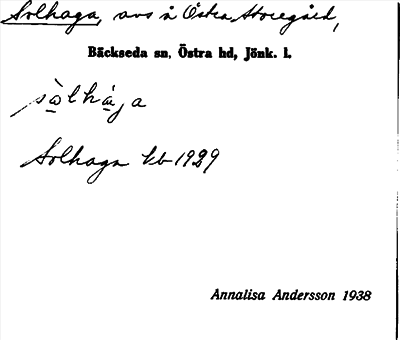 Solhaga, avs å Östra Storegård,
Bäckseda sn, Östra hd, Jönk. l.
sòlhága
Solhaga kb 1929
Annalisa Andersson 1938